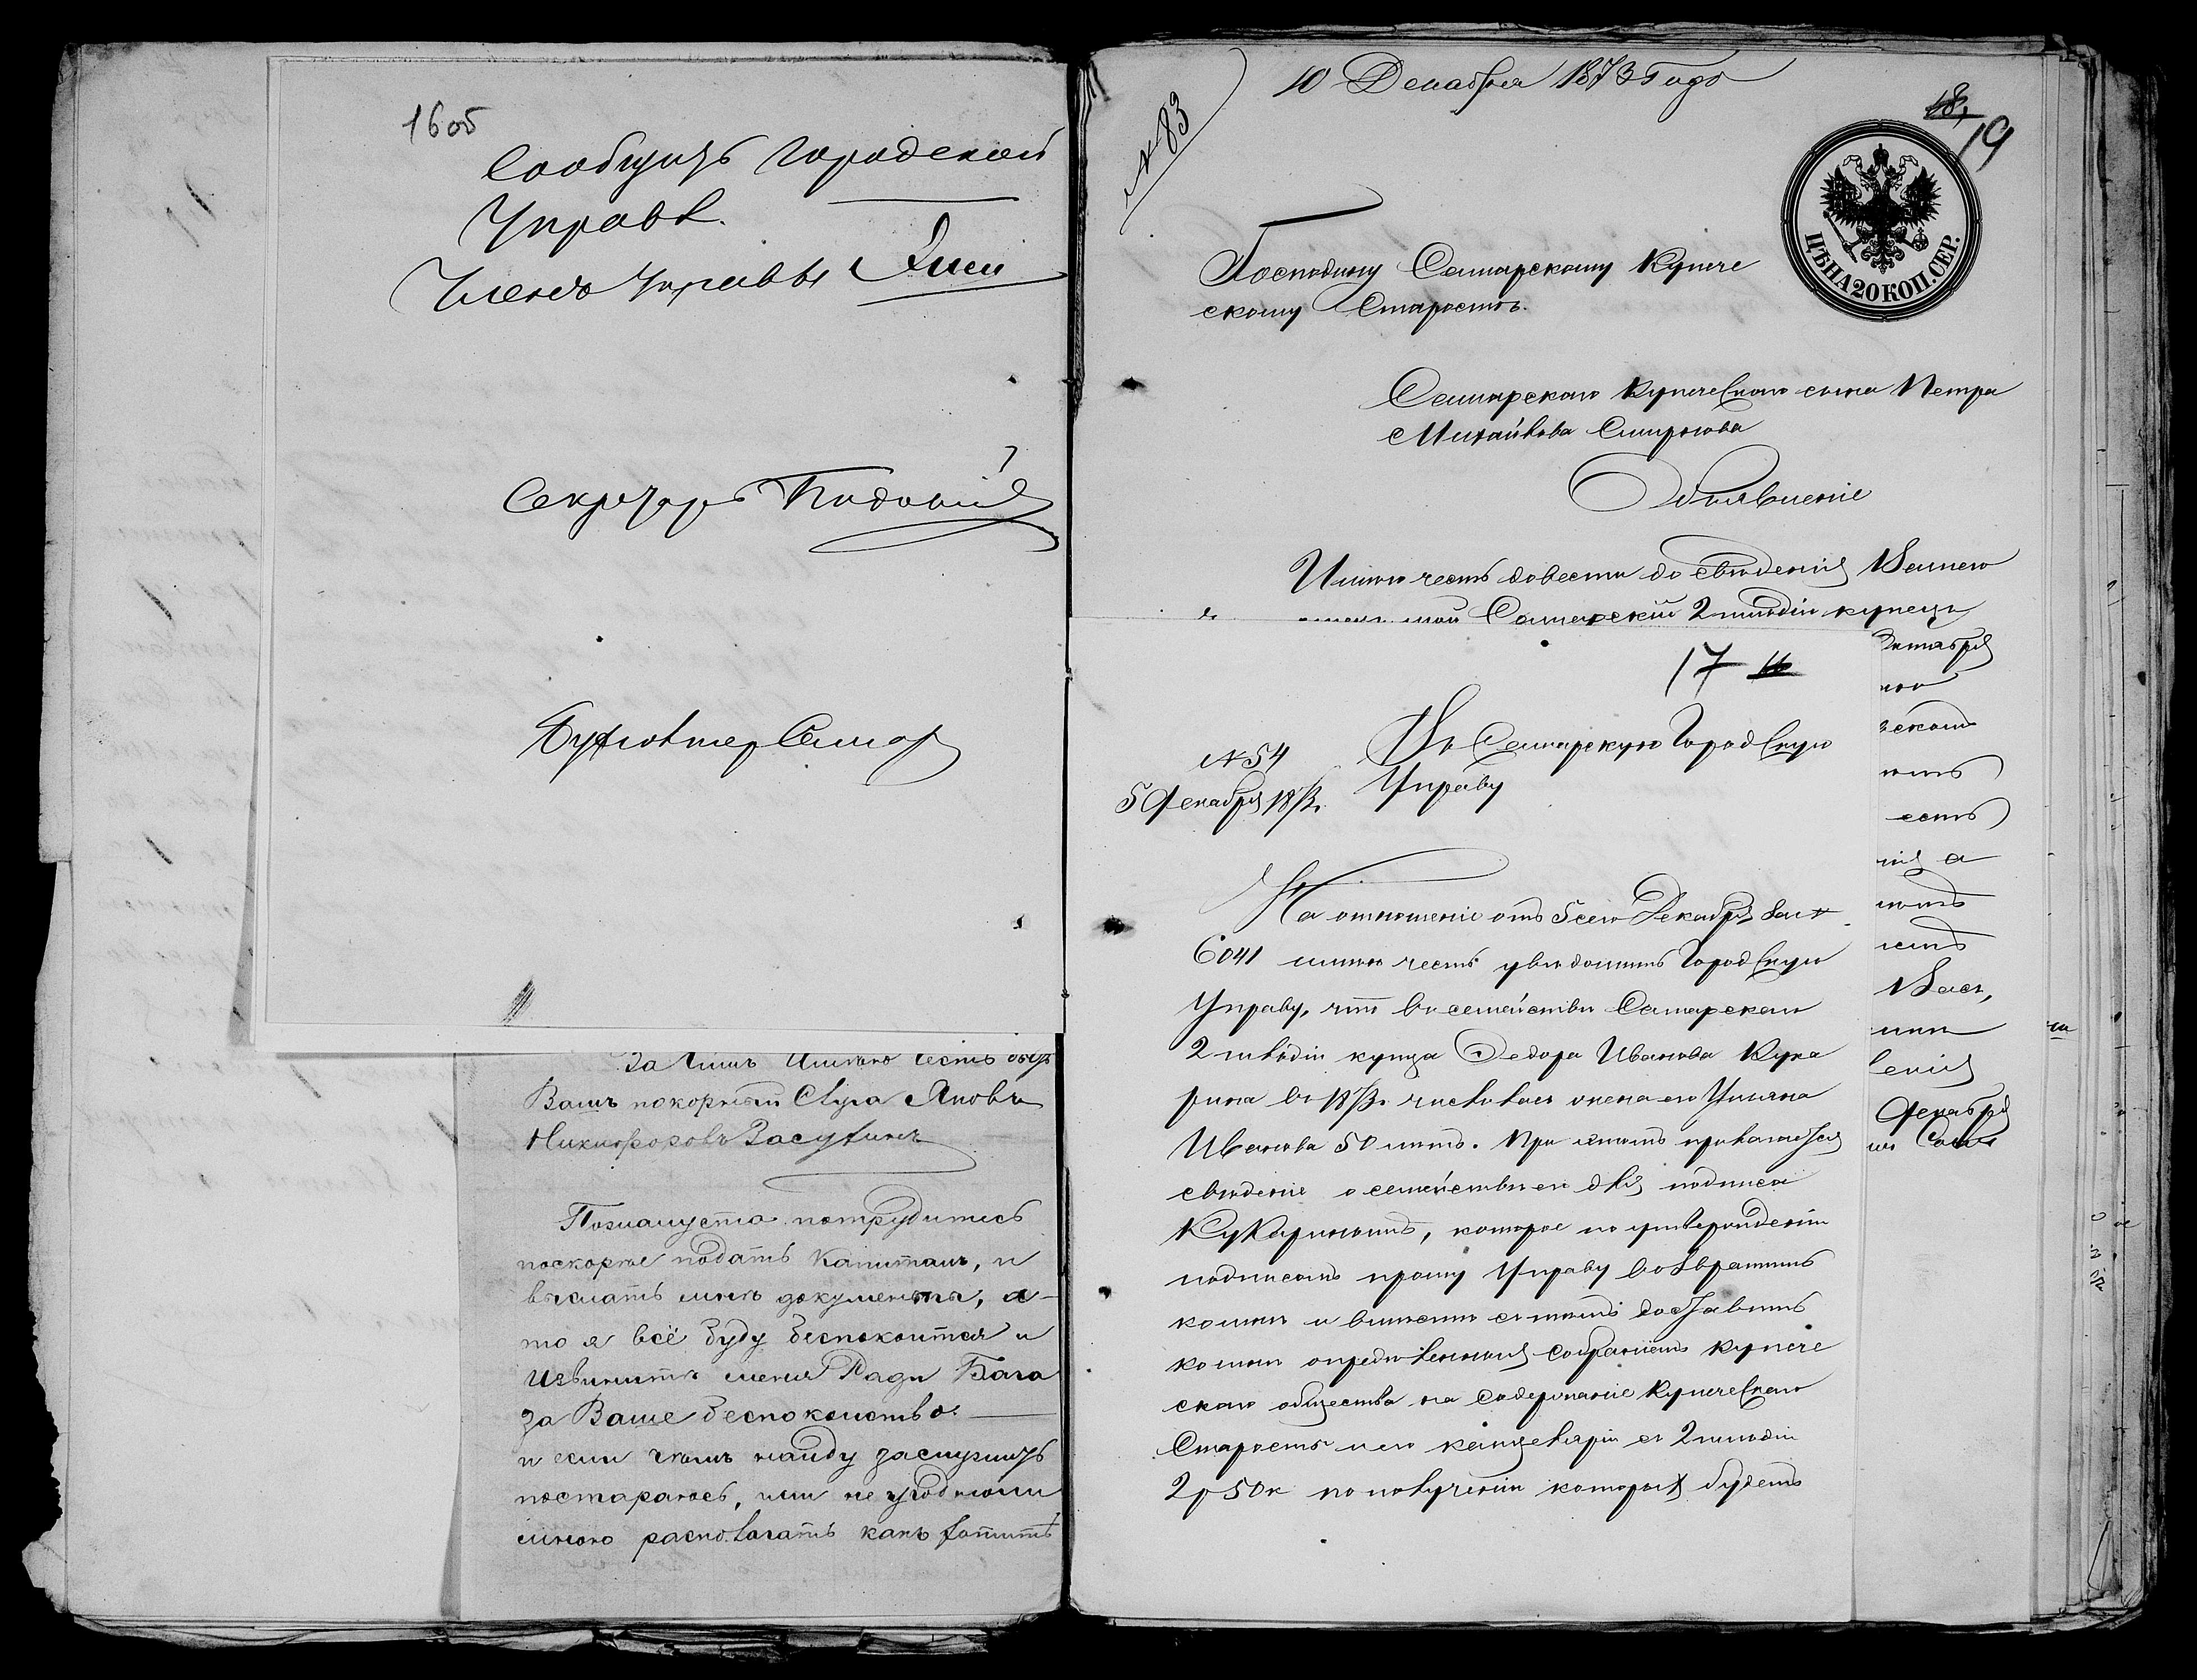 16 об
Сообщить Городской
Управѣ.
Членъ Управы
Секретарь
Бухгалтер
За тѣмъ Имѣю честь быть
Вашъ покорный Слуга Яковъ
Никифоровъ Засухинъ
Пожалуста потрудитесь
поскорѣе подать Капиталъ, и
выслать мнѣ документы, а
то я всё буду беспокоится и
Извинить меня Ради Бага
за Ваше беспокоиство.
и если чѣмъ найду заслужить
постараюсь, или не угодноли
мною располагать какъ хотитѣ
10 Декабря 1873 Года
№ 83
18, 19
ЦѢНА 20 КОП. СЕР.
Господину Самарскому Купече
скому Старостѣ.
Самарскаго Купеческаго сына Петра
Михайлова Смирнова
Объявленіе
Имѣю честь довести до свѣденія Вашего
мой Самарскій 2 гильдіи купецъ
17 16
№ 54
5 Декабря 1873 г.
Въ Самарскую Городскую
Управу
На отношеніе отъ 5 сего Декабря за №
6041 имѣю честь увѣдомить Городскую
Управу, что въ семействѣ Самарскаго
2 гильдіи купца Федора Иванова Кука
рина въ 1873 г. числилась жена его Ульяна
Иванова 50 лѣтъ. При этомъ прилагается
свѣденіе о семействѣ его для подписа
Кукаринымъ, которое по утвержденіи
подписомъ прошу Управу возвратить
ко мнѣ и вмѣстѣ съ тѣмъ доставить
ко мнѣ опредѣленныя собраніемъ купече
скаго общества на содержаніе Купеческаго
Старосты и его канцеляріи съ 2 гильдіи
2 р 50 к по полученіи которыхъ будетъ
Октября
есть
нія а
Васъ,
ленія
Декабря